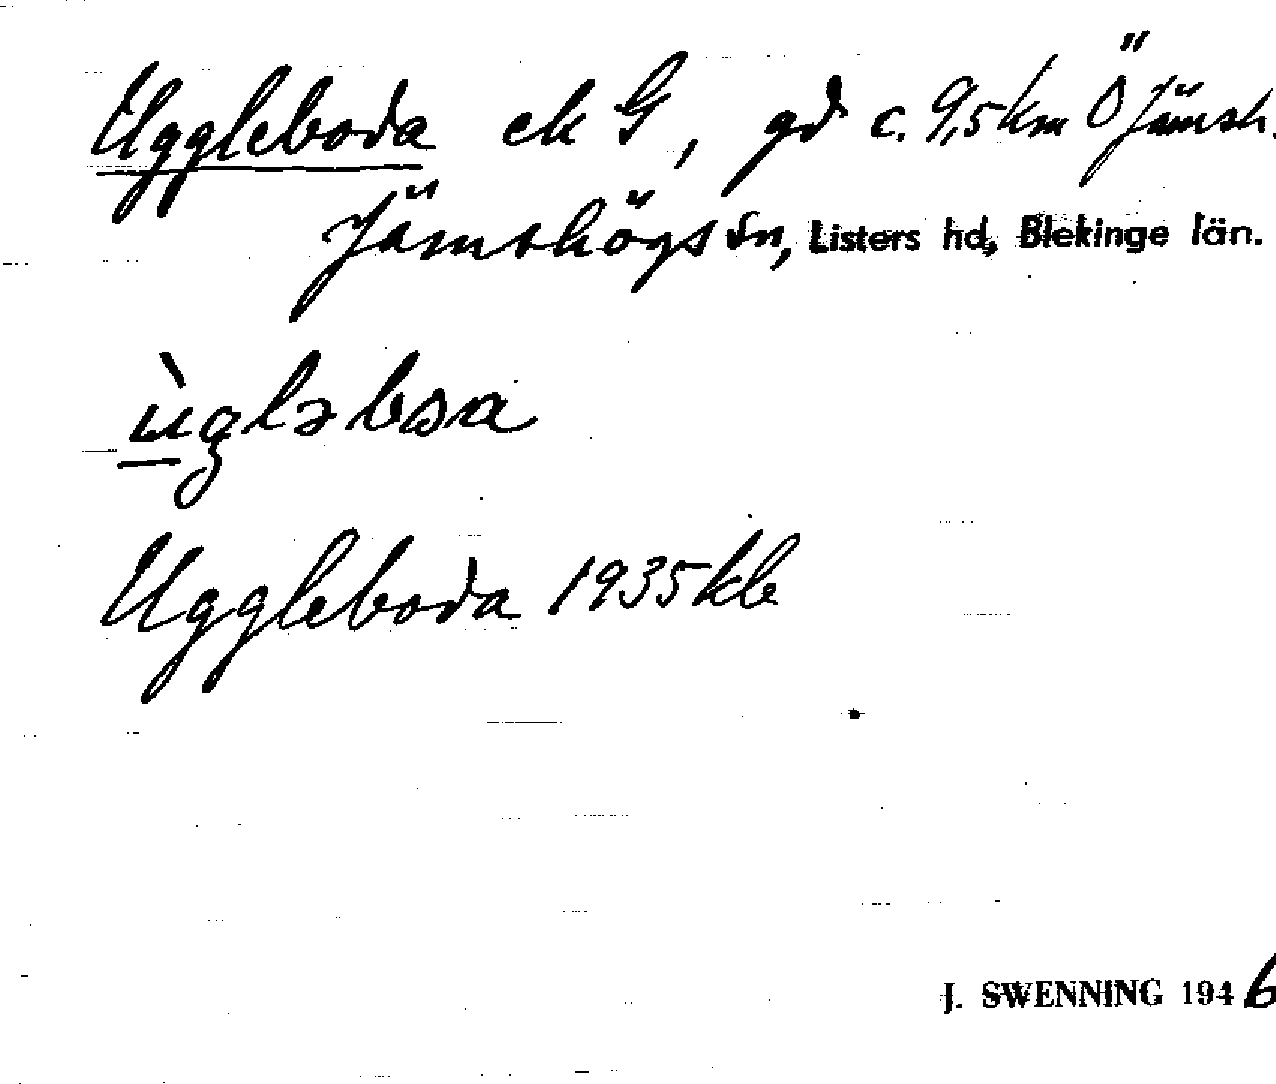 Uggleboda ek G, gd c. 9,5 km Ö Jämsh.
Jämshögs Sn, Listers hd, Blekinge län.
ùgləbωa
Uggleboda 1935 kb
J. SWENNING 1946